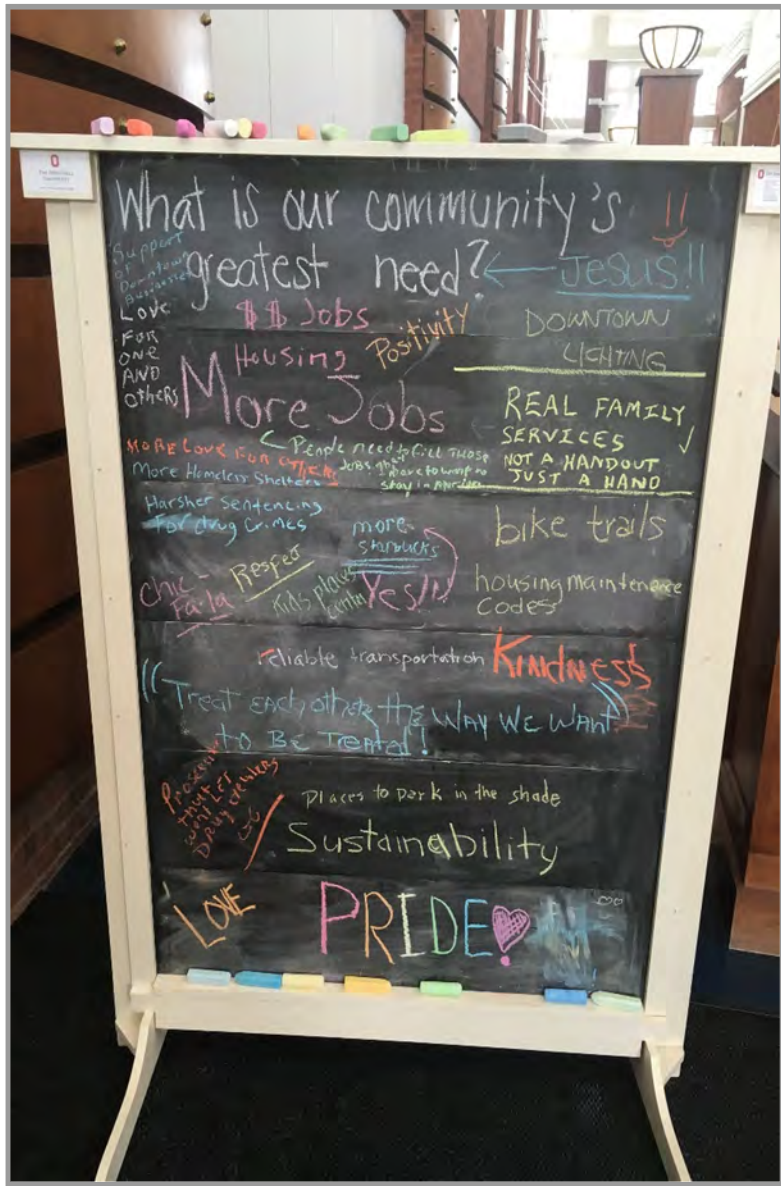 What is our community's
greatest need?
Jesus!!
Support
of
Downtown
Businesses
LOVE
FOR
ONE
AND
OtherS
$$ Jobs
Positivity
DOWNTOWN
LIGHTING
Housing
More Jobs
REAL FAMILY
SERVICES
NOT A HANDOUT
JUST A HAND
People need to fill THOSE
JOBS that
have to want to
stay in
MORE LOVE FOR OTHERS
More Homeless Shelters
Harsher sentencing
for drug Crimes
more
starbucks
Yes!!
bike trails
chic-
Fa-la
Respect
Kids places
center
housing maintenence
codes
reliable transportation
KINDNESS
"Treat Each other the WAY WE WANT"
to BE Treated!
that
wont LET
Drug dealers
go
places to park in the shade
Sustainability
LOVE
PRIDE!